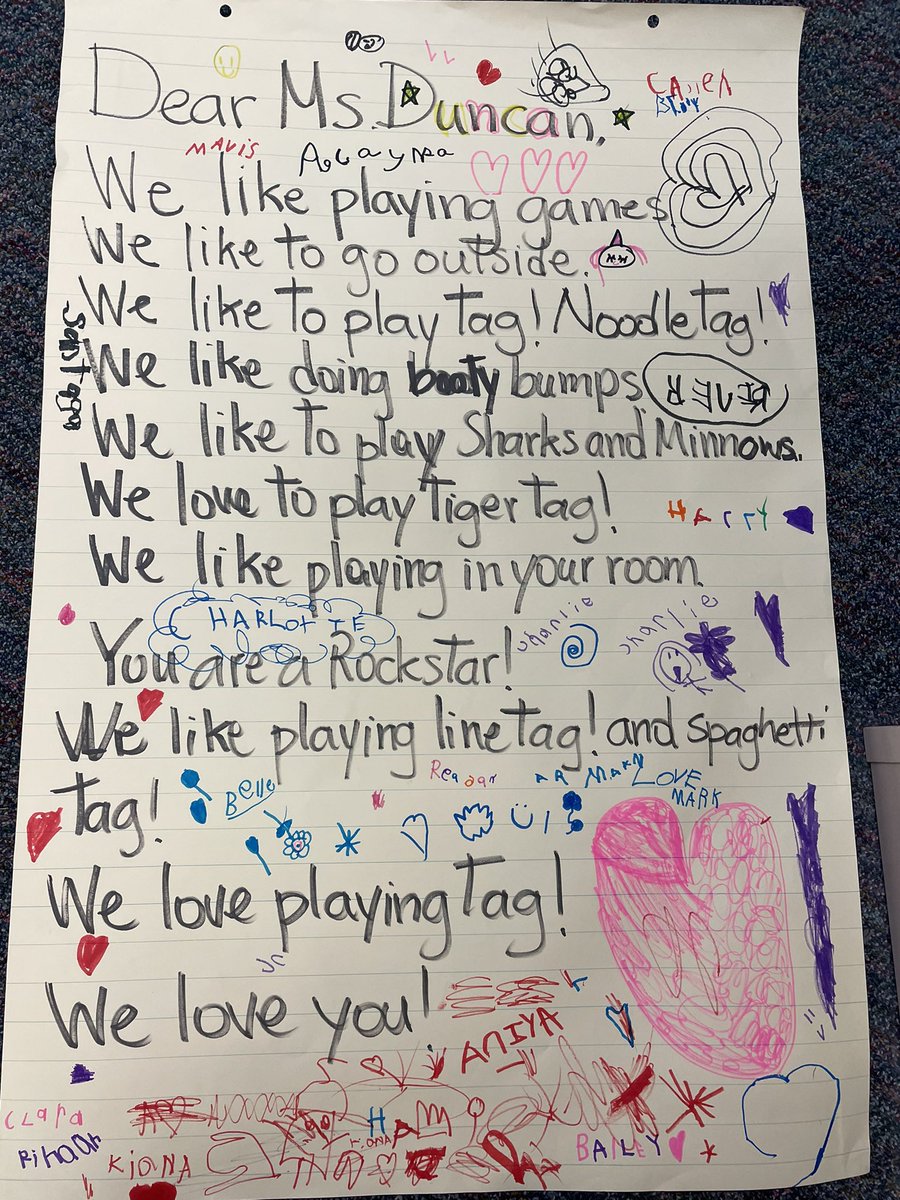 Dear Ms. Duncan,
CALLEN
MAVIS
We like playing games
We like to go outside.
We like to play tag! Noodle tag!
We like doing booty bumps
REMER
We like to play Sharks and Minnows.
We love to play Tiger tag!
HArrY
We like playing in your room.
HARLOTTE
charlie
charlie
You are a Rockstar!
We like playing line tag! and spaghetti
tag!
Bell
Reagan
LOVE
MARK
We love playing Tag!
We love you!
ANIYA
Clara
KIANA
H
KIONA
BAILEY